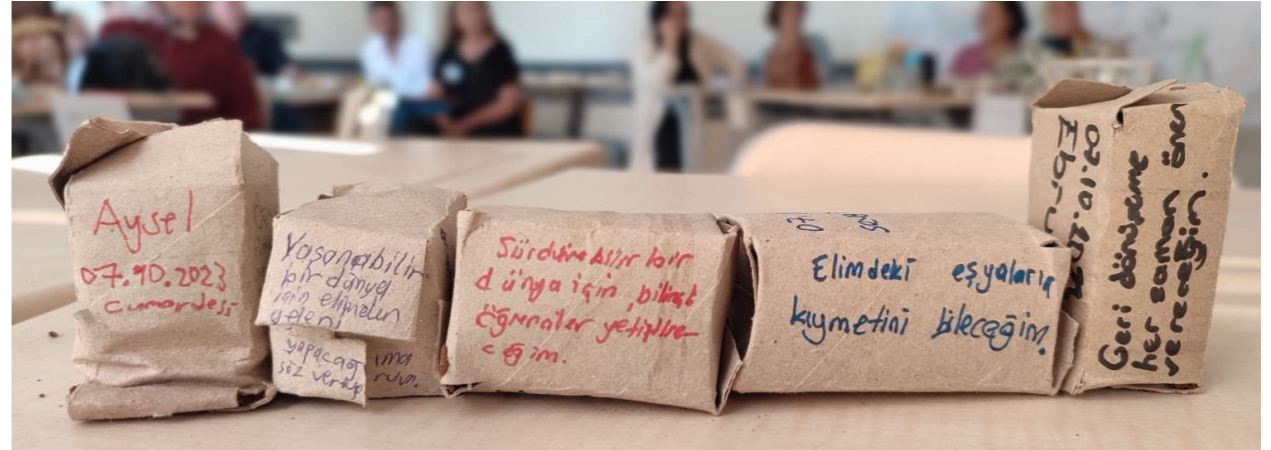 Aysel
07.10.2023
Cumartesi
Yaşanabilir
bir dünya
için elimden
geleni
yapacağ ıma
söz verip rum.
Sürdürebilir bir
dünya için, bilinçli
öğrenciler yetiştire-
ceğim.
07
Elimdeki eşyaların
kıymetini bileceğim.
07.10.202
Ebru
Geri dönüşüme
her zaman önem
vereceğim.